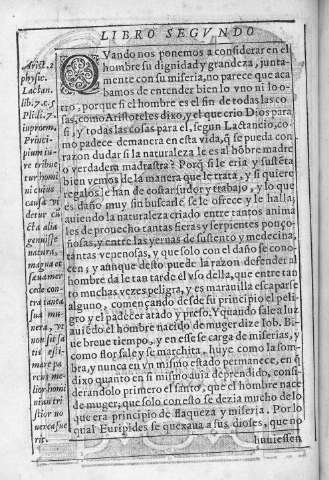 LIBRO SEGVNDO
QVando nos ponemos a considerar en el
hombre su dignidad y grandeza, junta-
mente con su miseria, no parece que aca
bamos de entender bien lo vno ni lo o-
tro, porque si el hombre es el fin de todas las co-
sas, como Aristoteles dixo, y el que crio Dios para
si, y todas las cosas para el, segun Lactancio, co-
mo padece de manera en esta vida, q̃ se pueda con
razon dudar si la naturaleza le es al hõbre madre
o verdadera madrastra? Porq̃ si le cria y sustẽta
bien vemos de la manera que le trata, y si quiere
regalos, le han de costar sudor y trabajo, y lo que
es daño muy sin buscarle, se le ofrece y le halla,
auiendo la naturaleza criado entre tantos anima
les de prouecho tantas fieras y serpientes ponço-
ñosas, y entre las yeruas de sustento y medecina,
tantas venenosas, y que solo con el daño se cono-
cen; y aunque desto puede la razon defender al
hombre da le tan tarde el vso della, que entre tan
to muchas vezes peligra, y es marauilla escaparse
alguno, començando desde su principio el peli-
gro y el padecer atado y preso. Y quando sale a luz
auiẽdo el hombre nacido de muger dize Iob. Bi-
ue breue tiempo, y en esse se carga de miserias, y
como flor sale y se marchita, huye como la som-
bra, y nunca en vn mismo estado permanece, en q̃
dixo quanto en si mismo auia deprendido, consi-
derandolo primero el santo, que el hombre nace
de muger, que solo con esto se dezia mucho de lo
que era principio de flaqueza y miseria. Por lo
qual Euripides se quexaua a sus dioses, que no
huuiessen
Arist. 2
physic.
Lactan.
lib. 7. c. 5
Plid. 7.
in proem.
Princi-
pium iu-
re tribue
tur homi
ni cuius
causa vi
detur cũ
cta alia
genuisse
natura,
magna et
sæua mer
cede con
tra tanta
sua mu
nera, vt
non sit sa
tis æsti-
mare pa
rens me-
lior homi
ni an tri
stior no
uerca fue
rit.